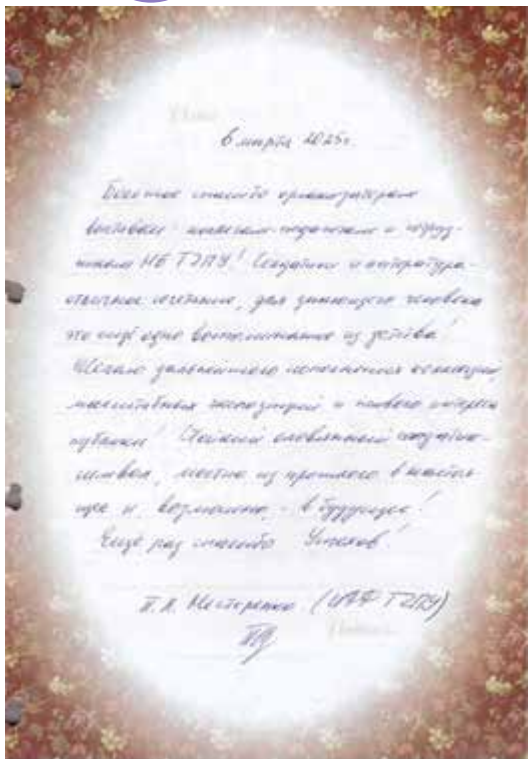 6 марта 2025г.
Большое спасибо организаторам
выставки: коллегам-педагогам и сотруд-
никам НБ ТГПУ! Солдатики и литература -
отличное сочетание, для знающего человека
это ещё одно воспоминание из детства!
Желаю дальнейшего пополнения коллекции,
масштабных экспозиций и живого интереса
публики! Стойкий оловянный солдатик -
символ, мостик из прошлого в настоя-
щее и, возможно, - в будущее!
Ещё раз спасибо! Успехов!
Нестеренко (ТГПУ)